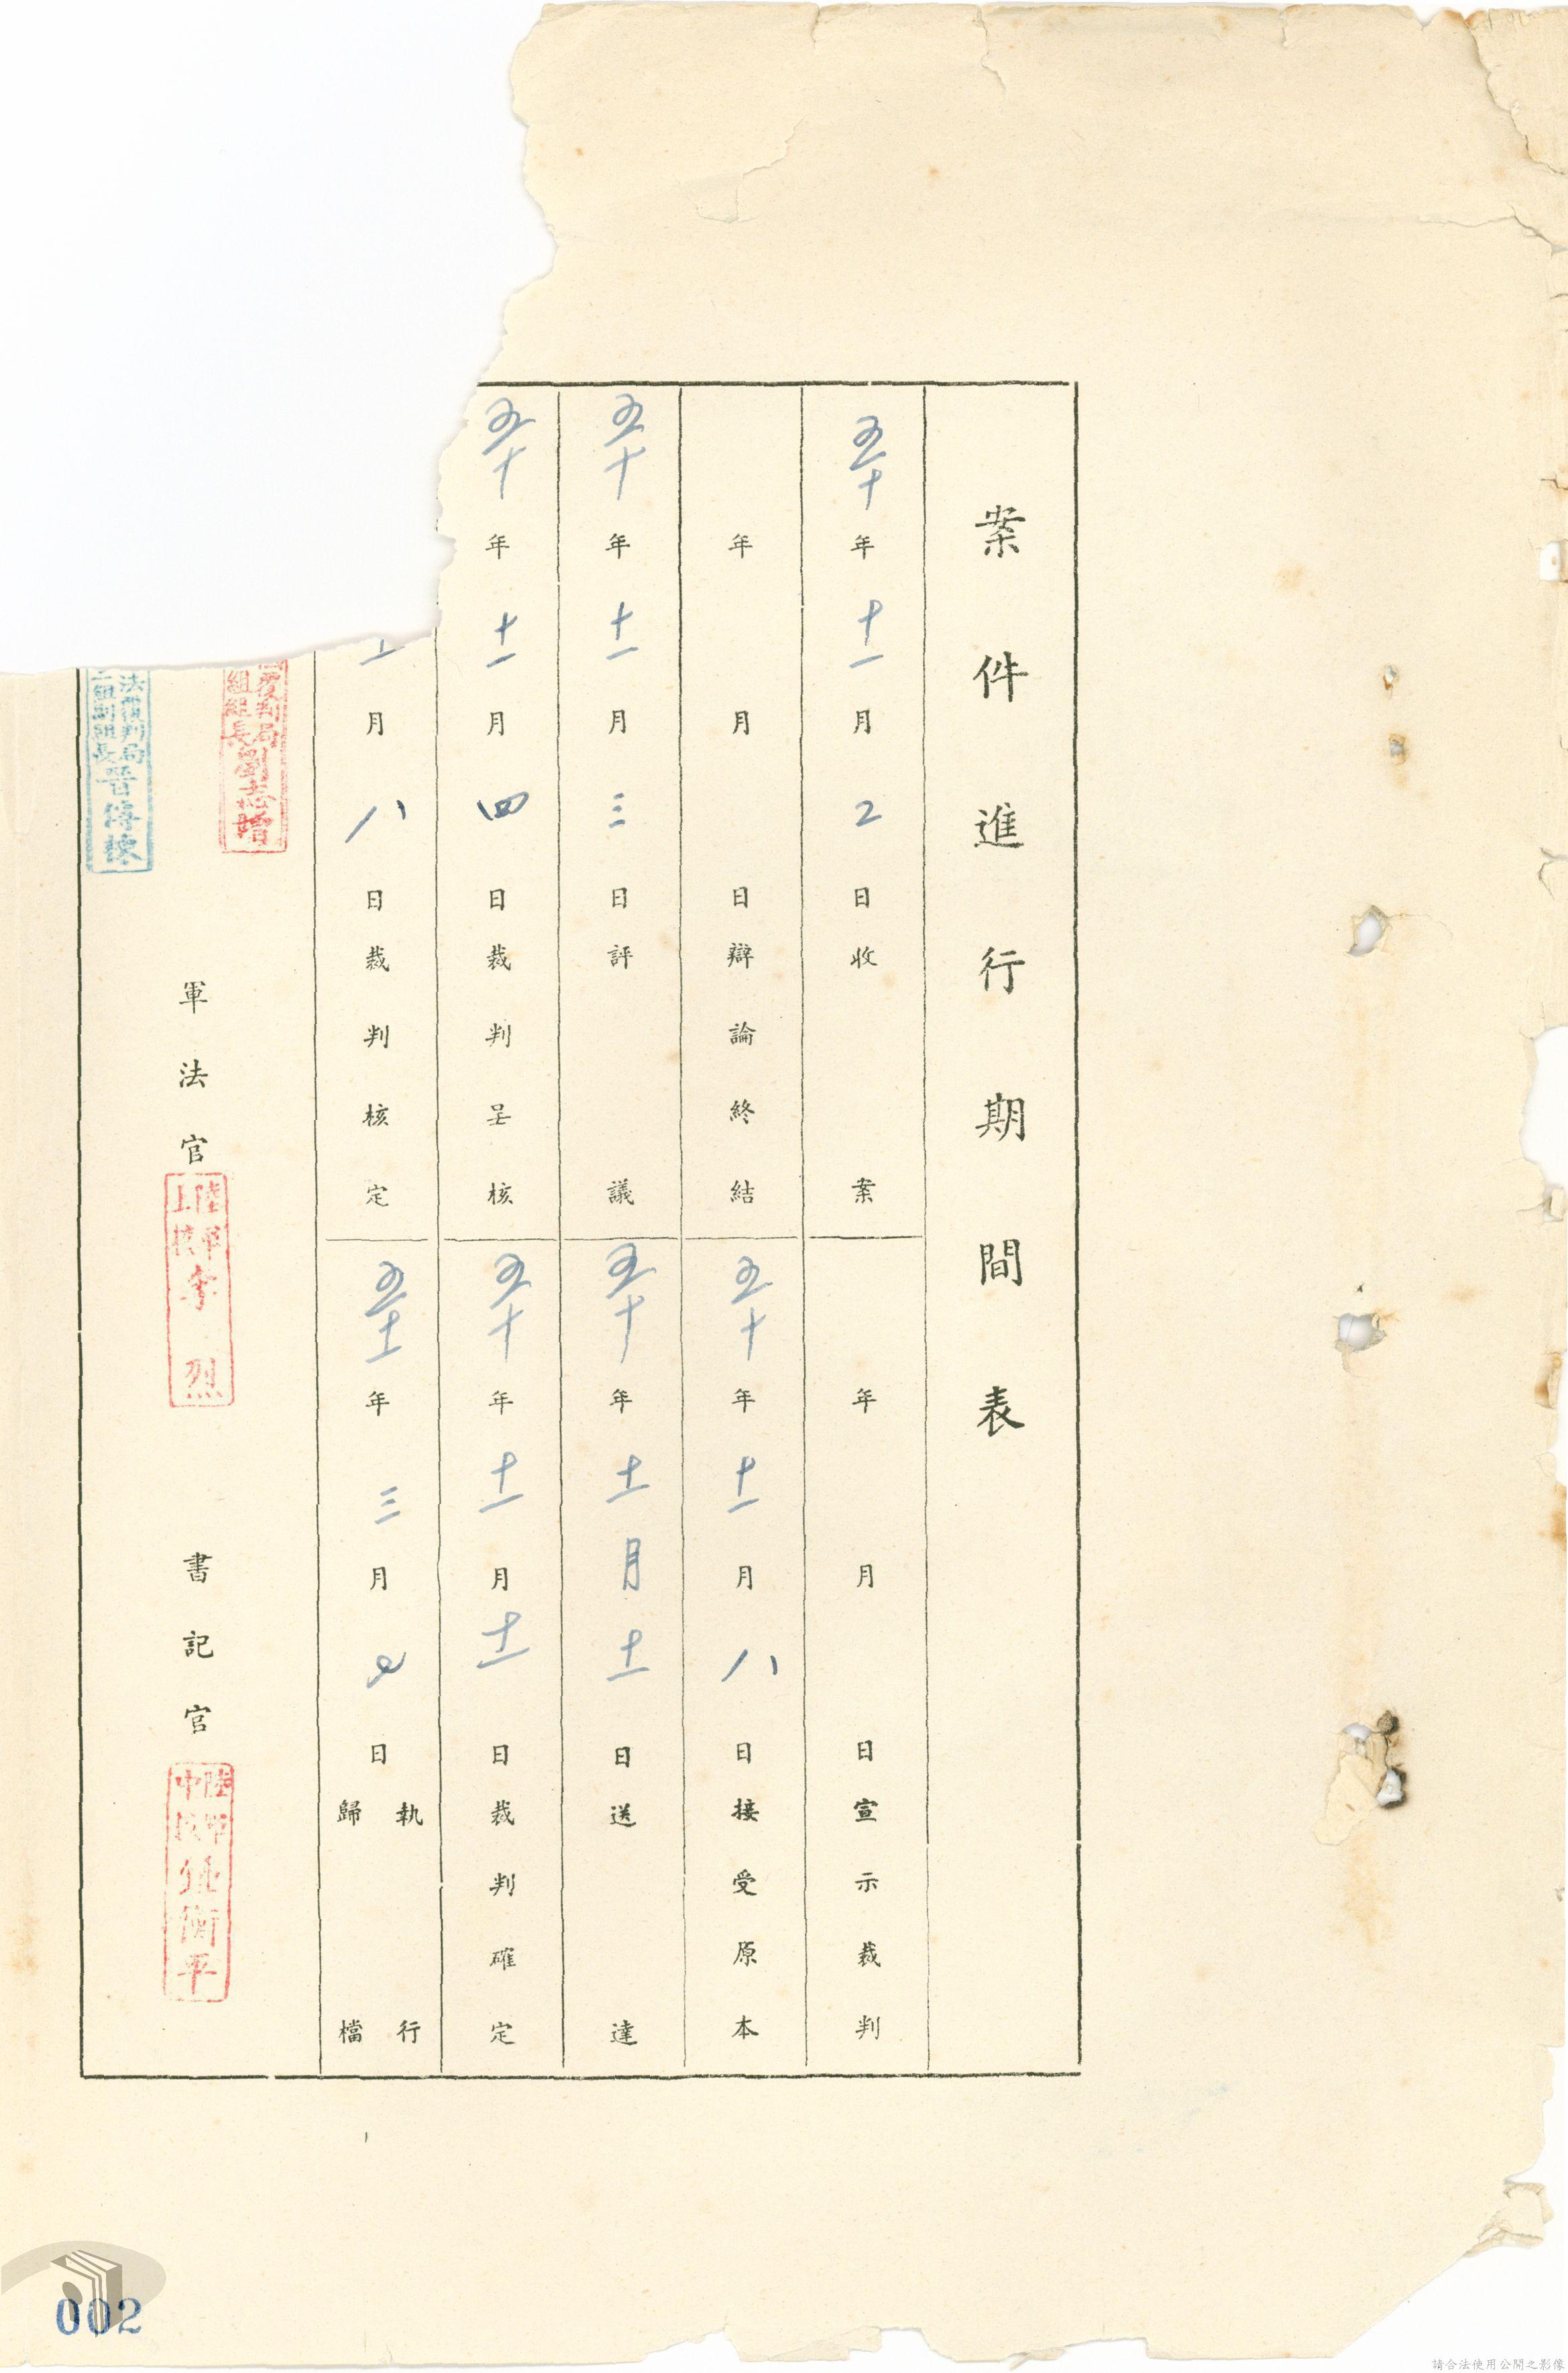 案件進行期間表
五十年十一月2日收案
年月日宣示裁判
年月日辯論終結
五十年十一月八日接受原本
五十年十一月三日評議
五十年十一月月十一日送達
五十年十一月四日裁判呈核
五十年十一月十一日裁判確定
月八日裁判核定
五十一年三月日執行歸檔
覆判局
組組長劉志增
法覆判局
組副組長晉傳棟
軍法官
陸軍上校李烈
書記官
陸軍中校 衡平
002
請合法使用公開之影像